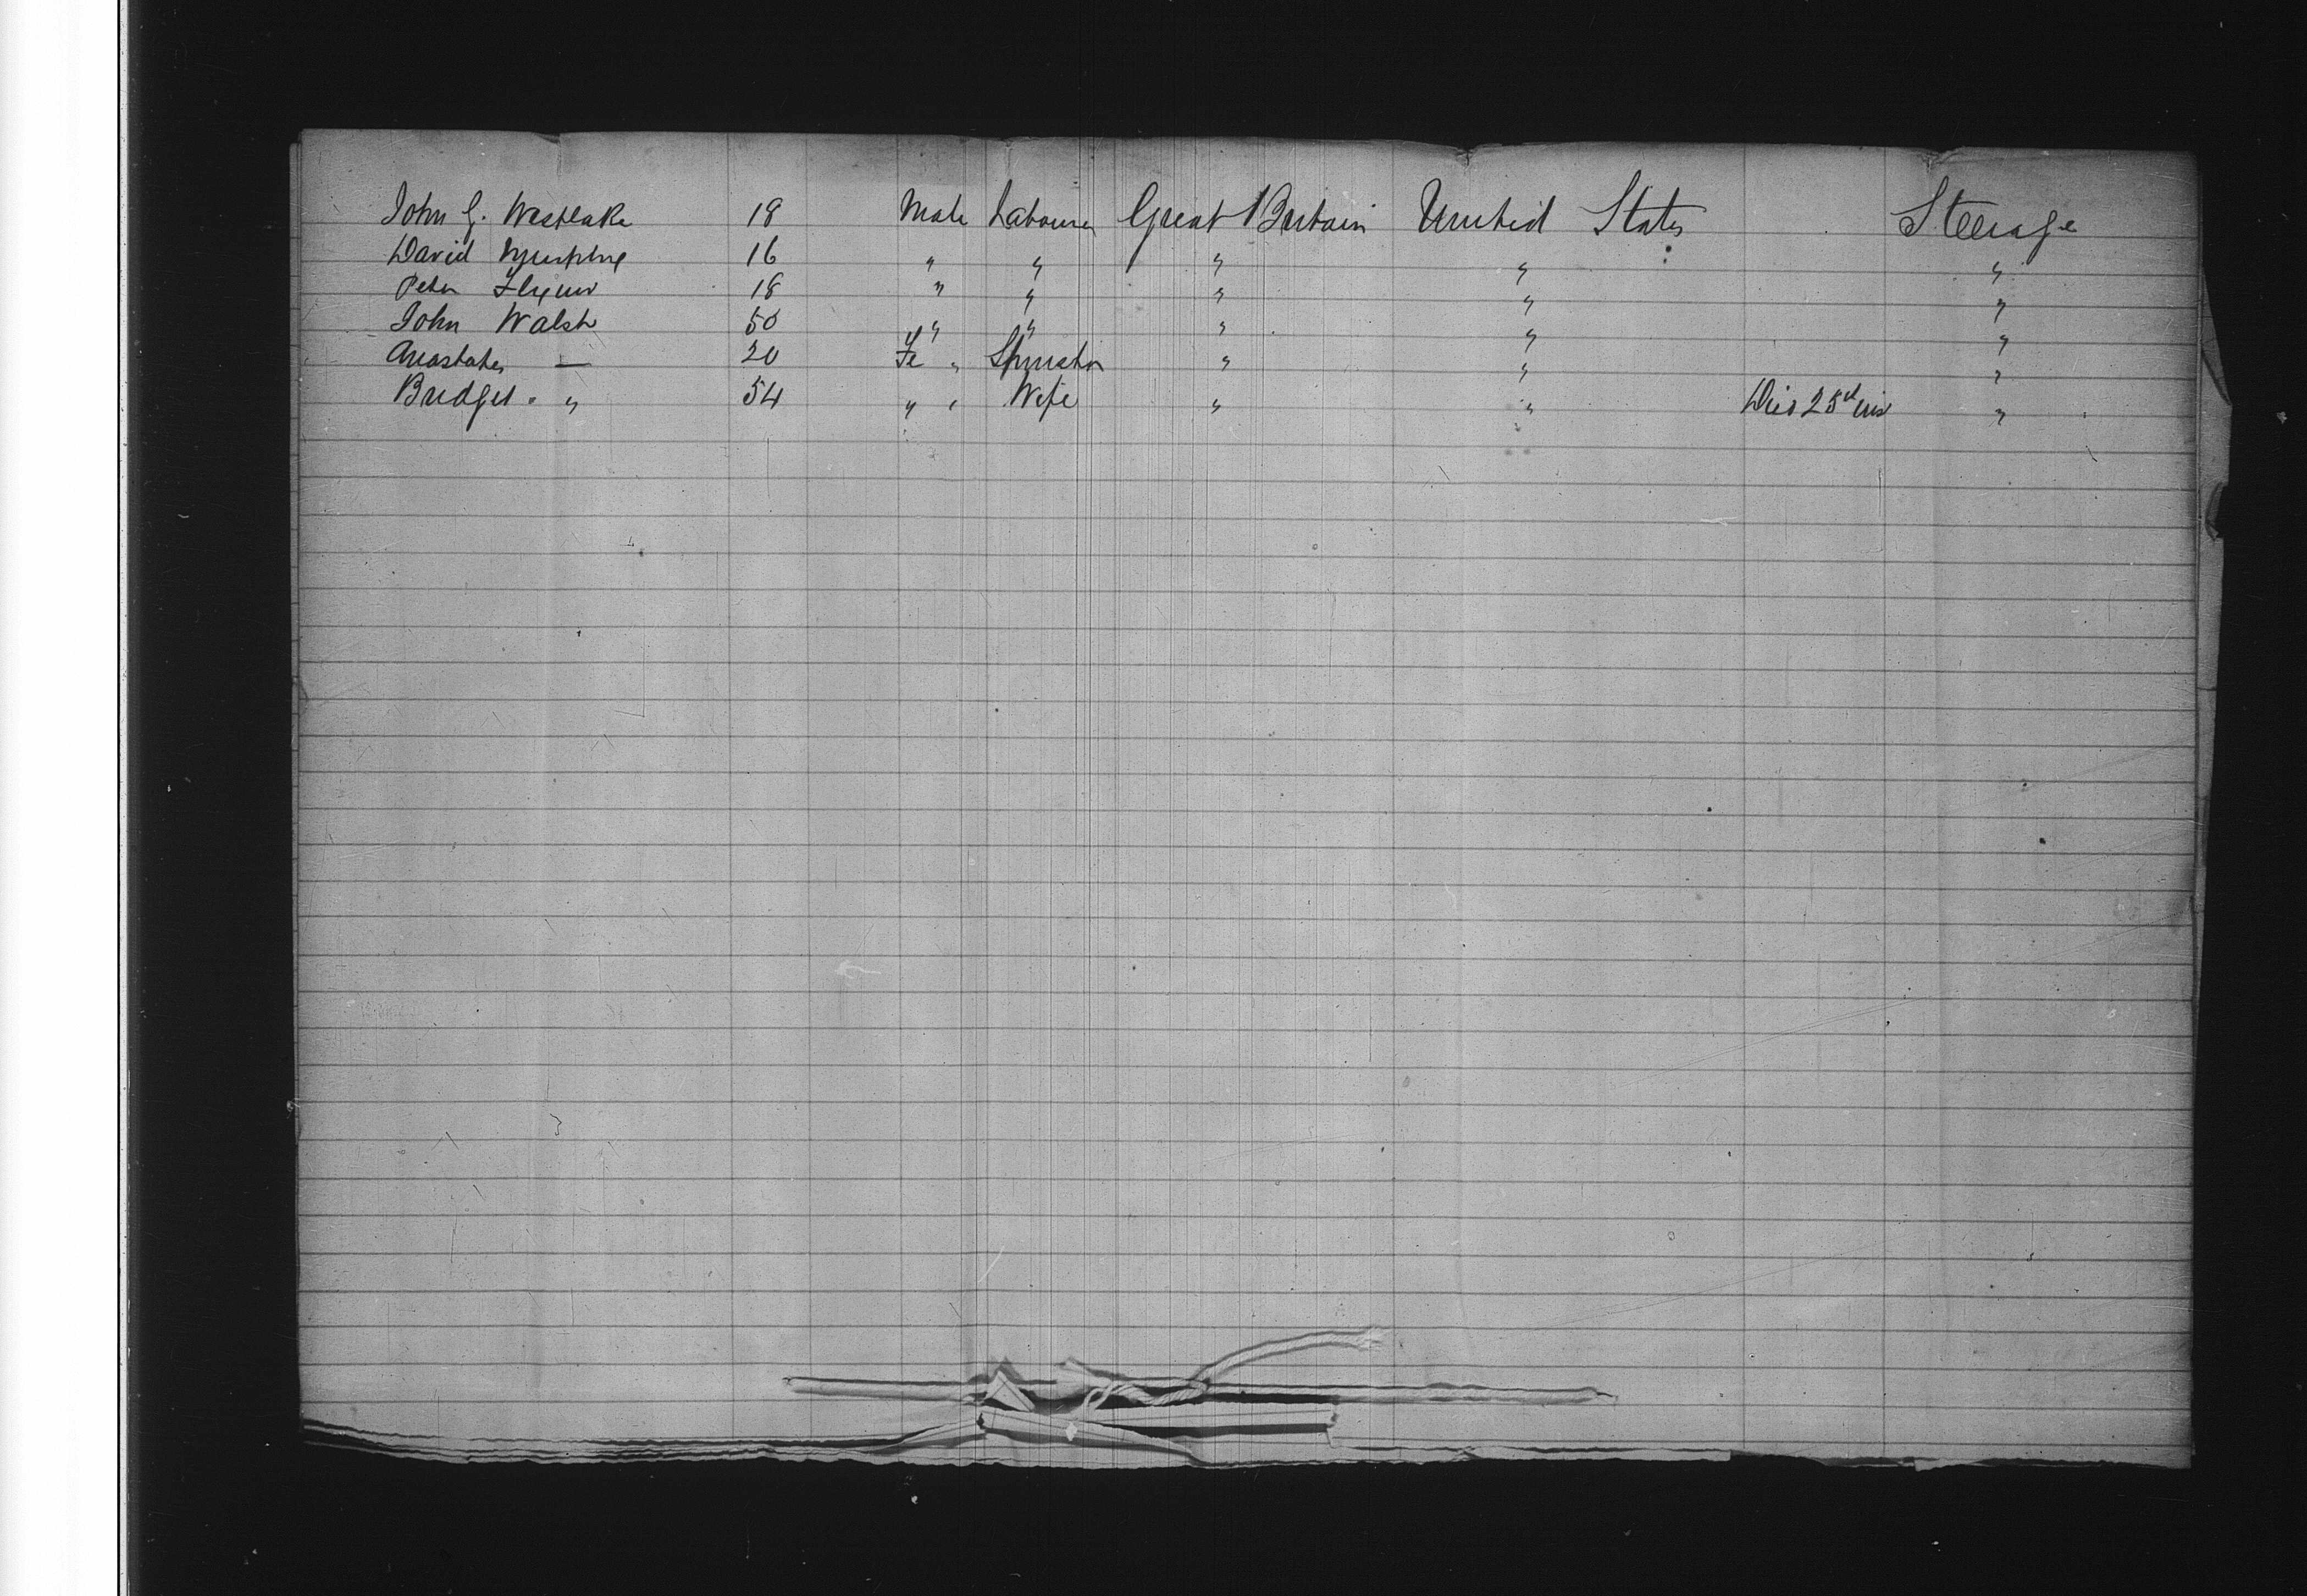 John G. Westlake 18 Male Labourer Great Britain United States Steerage
David Murphy 16 " " " " "
Peter 18 " " " " "
John Walsh 50 " " " " "
Anastatia — 20 Fe " Spinster " " "
Bridget " 54 " " Wife " " Died 25th "